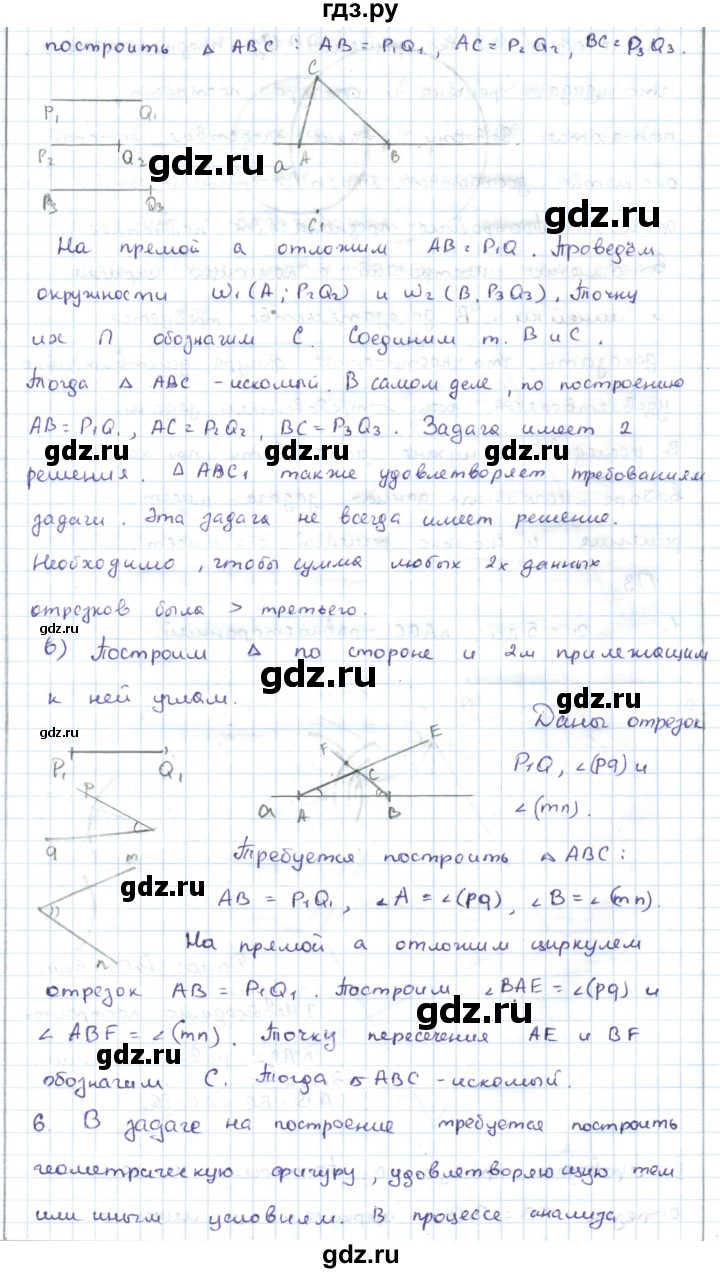 гдз.ру
построить △ ABC : AB = P₁Q₁, AC = P₂Q₂, BC = P₃Q₃.
C
P₁ Q₁
P₂ Q₂
a A B
P₃ Q₃
C₁
gdz.ru
gdz.ru
На прямой a отложим AB = P₁Q. Проведём
окружности ω₁(A; P₂Q₂) и ω₂(B, P₃Q₃). Точку
их ∩ обозначим C. Соединим т. B и C.
Тогда △ ABC - искомый. В самом деле, по построению
AB = P₁Q₁, AC = P₂Q₂, BC = P₃Q₃. Задача имеет 2
gdz.ru
gdz.ru
gdz.ru
решения. △ ABC₁ также удовлетворяет требованиям
задачи. Эта задача не всегда имеет решение.
Необходимо, чтобы сумма любых 2х данных
отрезков была > третьего.
gdz.ru
б) Построим △ по стороне и 2м прилежащим
к ней углам.
gdz.ru
gdz.ru
gdz.ru
Даны отрезок
P₁Q, ∠(pq) и
∠(mn).
P₁ Q₁
F E
C
a A B
p
q
m
n
Требуется построить △ ABC:
gdz.ru
AB = P₁Q₁, ∠A = ∠(pq), ∠B = ∠(mn).
На прямой a отложим циркулем
отрезок AB = P₁Q₁. Построим ∠BAE = ∠(pq) и
gdz.ru
∠ ABF = ∠(mn). Точку пересечения AE и BF
gdz.ru
обозначим C. Тогда △ ABC - искомый.
6. В задаче на построение требуется построить
геометрическую фигуру, удовлетворяющую тем
или иным условиям. В процессе анализа
gdz.ru